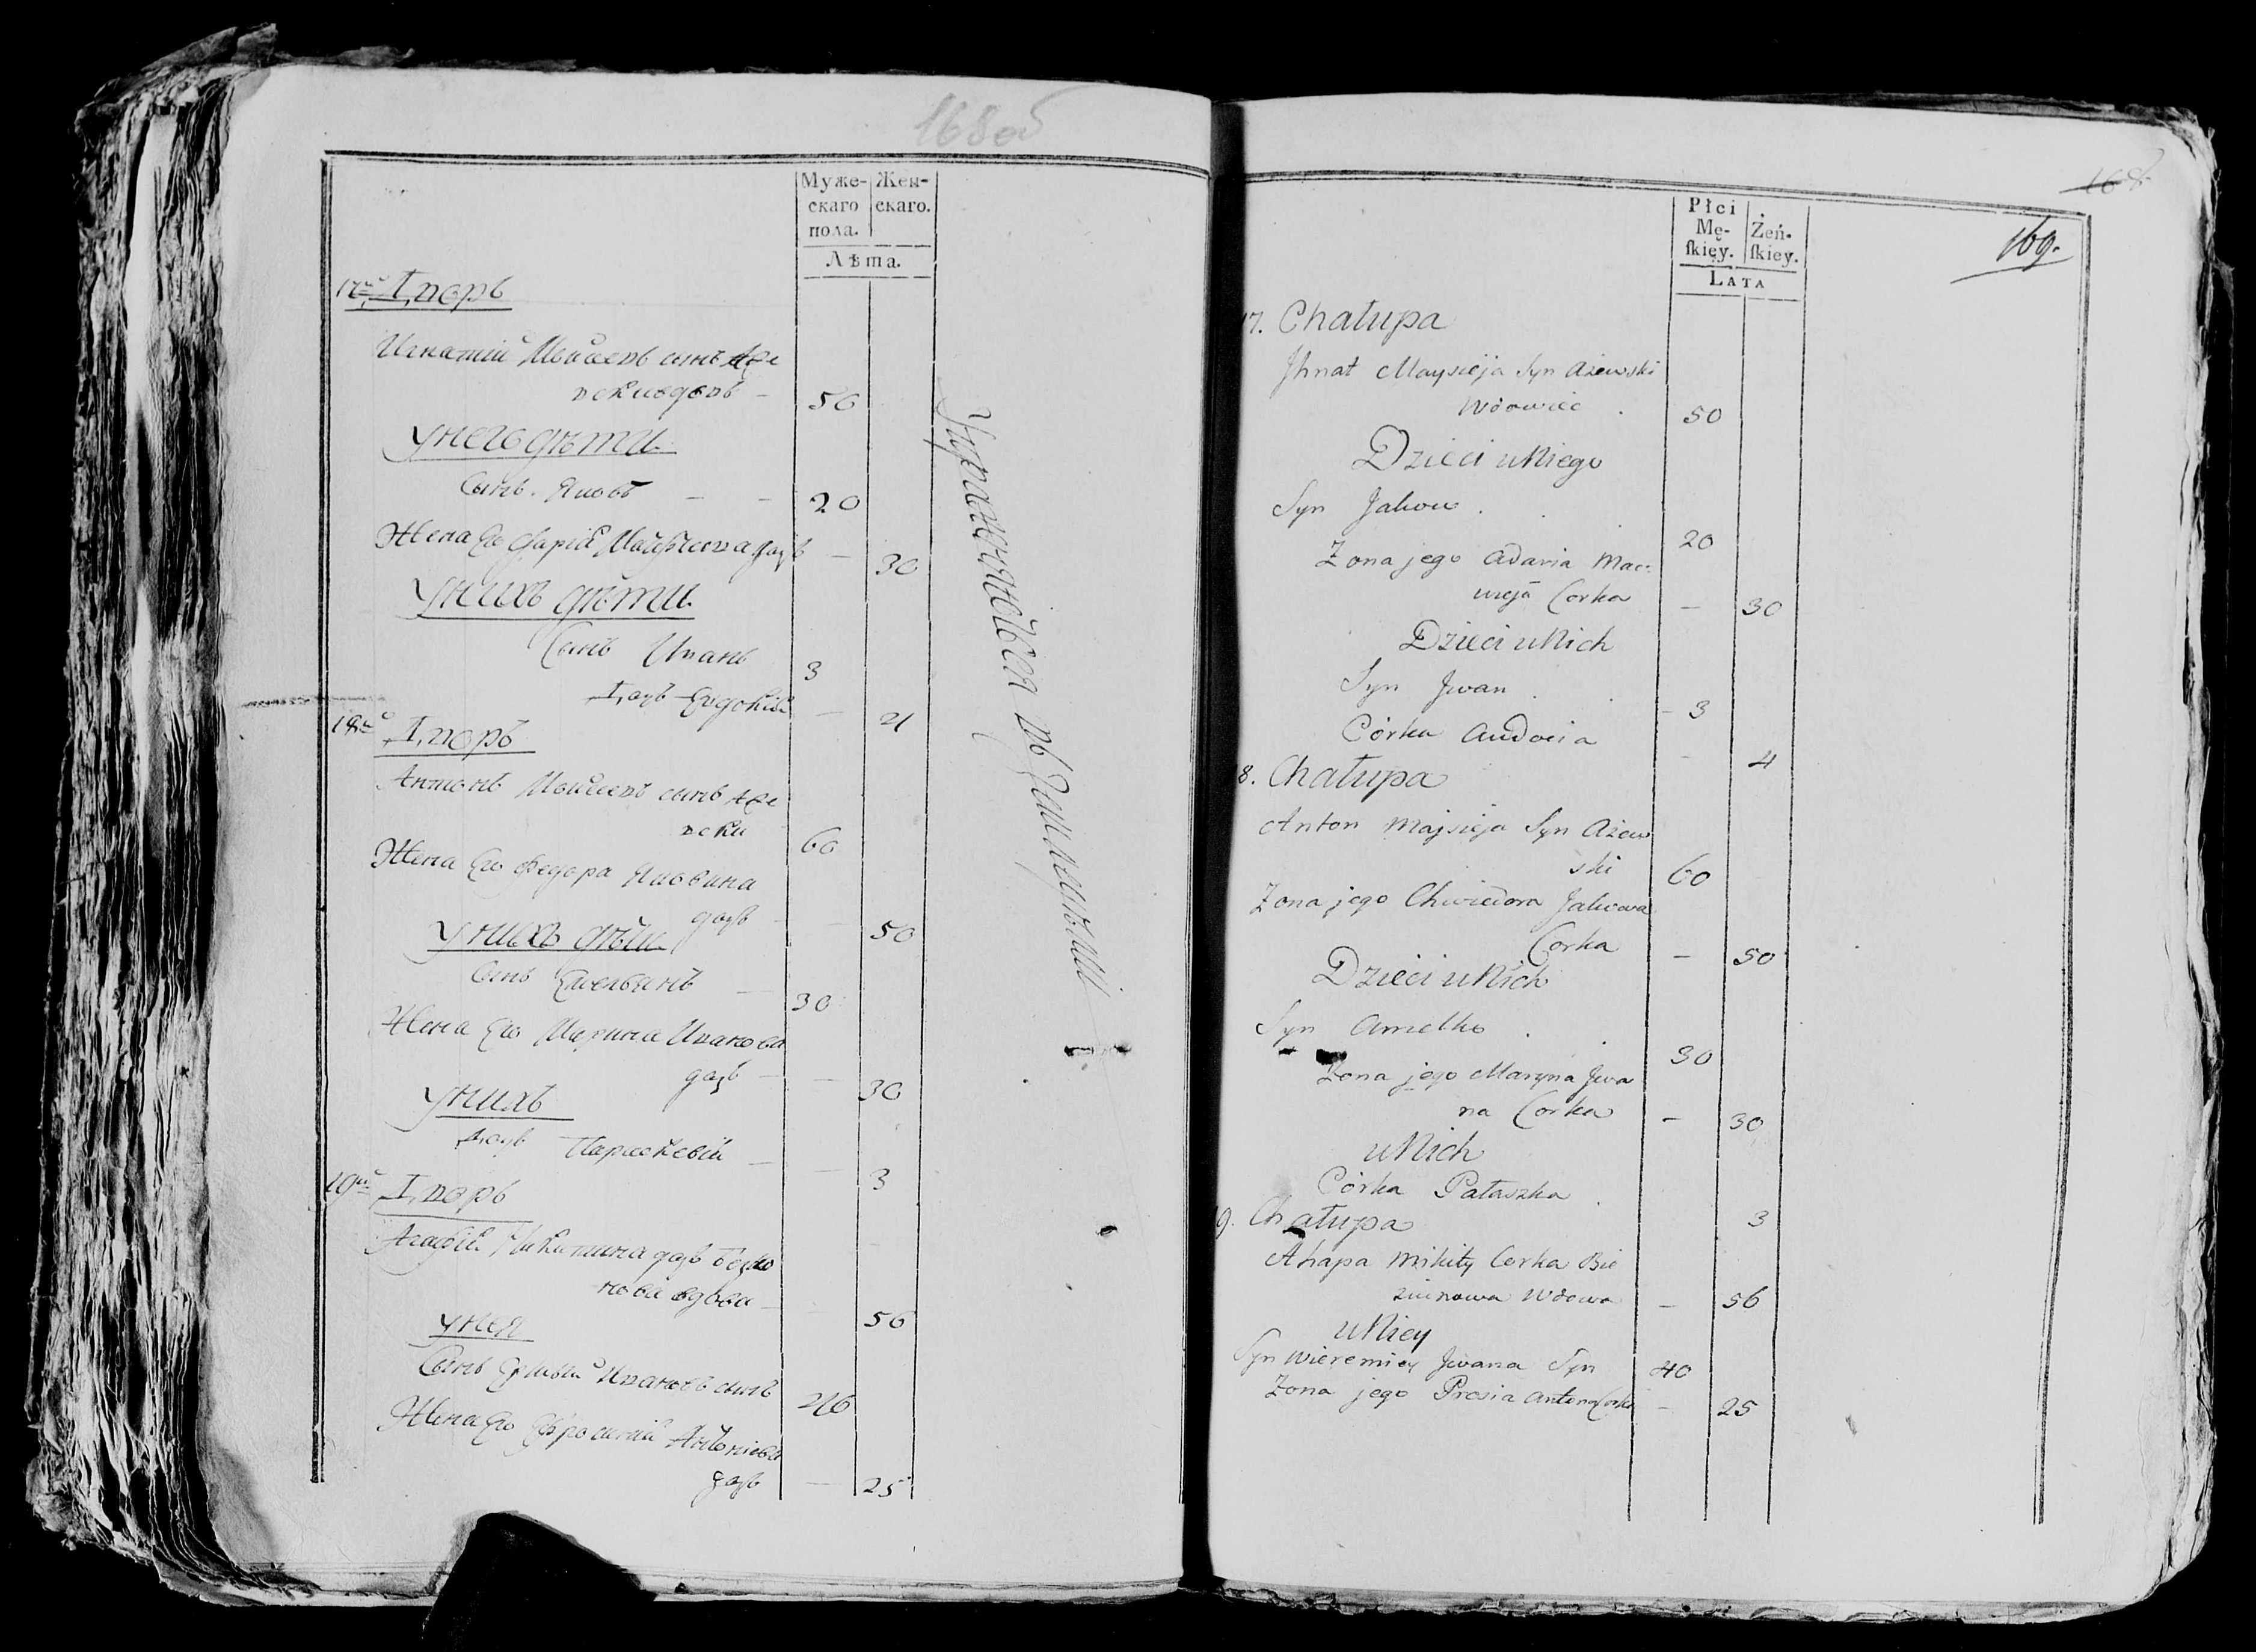 168об
Муже-
скаго
пола.
Жен-
скаго.
Лѣта.
17й Дворъ
Игнатій Мойсеевъ сынъ Аже
вски вдовъ – 50
У него дѣти
Сынъ Яковъ – – 20
Жена Его Дарія Матфеева дочь – 30
У нихъ дѣти
Сынъ Иванъ 3
Дочь Евдокія – 4
18й Дворъ
Антонъ Мойсеевъ сынъ Аже
вски 60
Жена Его Федора Яковина
дочь – – 50
У нихъ дѣти
Сынъ Емельянъ – 30
Жена Его Марина Иванова
дочь – – 30
У нихъ
Дочь Параскевія – – 3
19й Дворъ
Агафія Никитина дочь
нова вдова – 56
У нея
Сынъ Еремѣй Ивановъ сынъ 40
Жена Его Ефросинія Антоніева
дочь – 25
Упражняются въ Земледѣліи
168
169.
Płci
Mę-
ſkiey.
Żeń-
ſkiey.
LATA
17. Chałupa
Jhnat Maysieja Syn Ażewski
Wdowiec . 50
Dzieci u Niego
Syn Jakow . . . 20
Zona jego Adaria Mac:
wieja Corka – 30
Dzieci u Nich
Syn Jwan . . – 3
Córka Audocia – 4
8. Chałupa
Anton Majsieja Syn Ażew
ski 60
Zona jego Chwiedora Jakowa
Corka – 50
Dzieci u Nich
Syn Amelko . . 30
Zona jego Maryna Jwa
na Corka – 30
u Nich
Córka Pałaszka . 3
9. Chałupa
Ahapa Mikity Corka Bie
zunowa Wdowa – 56
u Niey
Syn Wieremiey Jwana Syn 40
Zona jego Prosia Antona Corka – 25